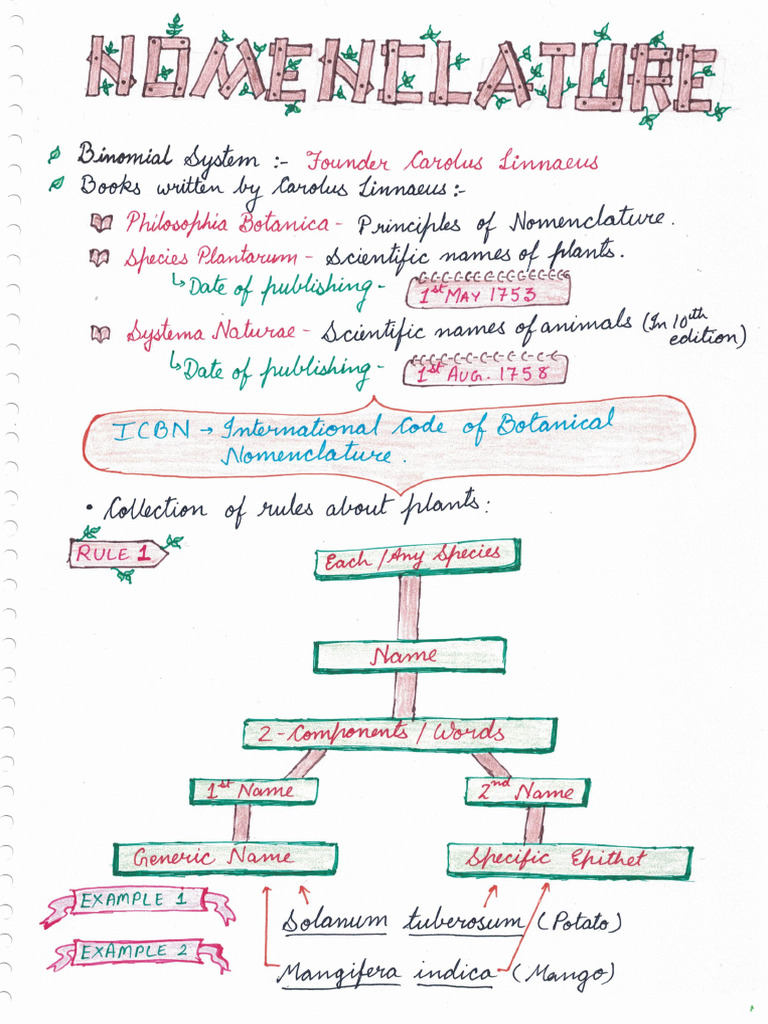 NOMENCLATURE
Binomial System :- Founder Carolus Linnaeus
Books written by Carolus Linnaeus :-
Philosophia Botanica - Principles of Nomenclature.
Species Plantarum - Scientific names of plants.
↳ Date of publishing - 1st MAY 1753
Systema Naturae - Scientific names of animals (In 10th edition)
↳ Date of publishing - 1st AUG. 1758
ICBN → International Code of Botanical
Nomenclature.
• Collection of rules about plants:
RULE 1
Each/Any Species
Name
2-Components/Words
1st Name 2nd Name
Generic Name Specific Epithet
EXAMPLE 1
Solanum tuberosum (Potato)
EXAMPLE 2
Mangifera indica (Mango)